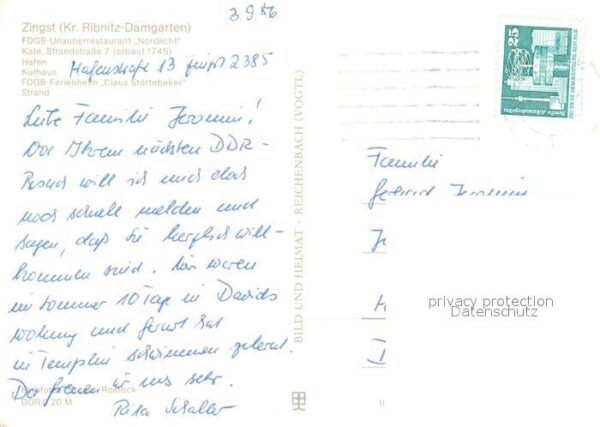 3.9.86
Zingst (Kr. Ribnitz-Damgarten)
FDGB-Urlauberrestaurant „Nordlicht“
Kate, Strandstraße 7 (erbaut 1745)
Hafen
Kurhaus
FDGB-Ferienheim „Claus Störtebeker“
Strand
Hafenstraße 13 Zingst 2385
Liebe Familie Jeromin!
Vor Ihrem nächsten DDR-
Besuch will ich mich doch
noch schnell melden und
sagen, daß Sie herzlich will-
kommen sind. Wir waren
im Sommer 10 Tage in Davids
Wohnung und Gernot hat
in Templin schwimmen gelernt.
Da freuen wir uns sehr.
Rita Schaller
Rostock
DDR 0,20 M
BILD UND HEIMAT · REICHENBACH (VOGTL)
25
Berlin, Alexanderplatz
DEUTSCHE DEMOKRATISCHE REPUBLIK
Familie
Gerhard Jeromin
privacy protection
Datenschutz